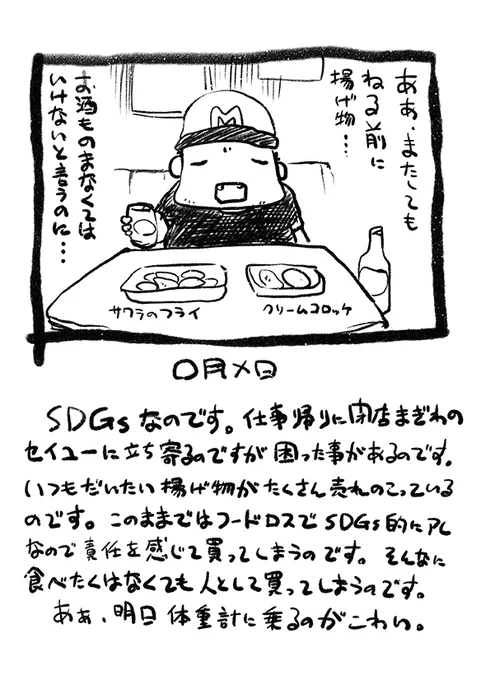 ああ、またしても
ねる前に
揚げ物…
お酒ものまなくては
いけないと言うのに…
M
サワラのフライ
クリームコロッケ
〇月〆日
SDGsなのです。仕事帰りに閉店まぎわの
セイユーに立ち寄るのですが困った事があるのです。
いつもだいたい揚げ物がたくさん売れのこっている
のです。このままではフードロスでSDGs的にアレ
なので責任を感じて買ってしまうのです。そんなに
食べたくはなくても人として買ってしまうのです。
ああ、明日体重計に乗るのがこわい。